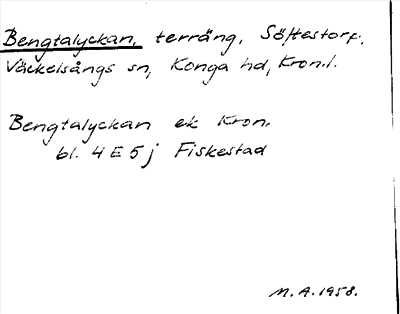 Bengtalyckan, terräng, Söftestorp,
Väckelsångs sn, Konga hd, Kron.l.
Bengtalyckan ek Kron.
bl. 4 E 5 j Fiskestad
M. A. 1958.